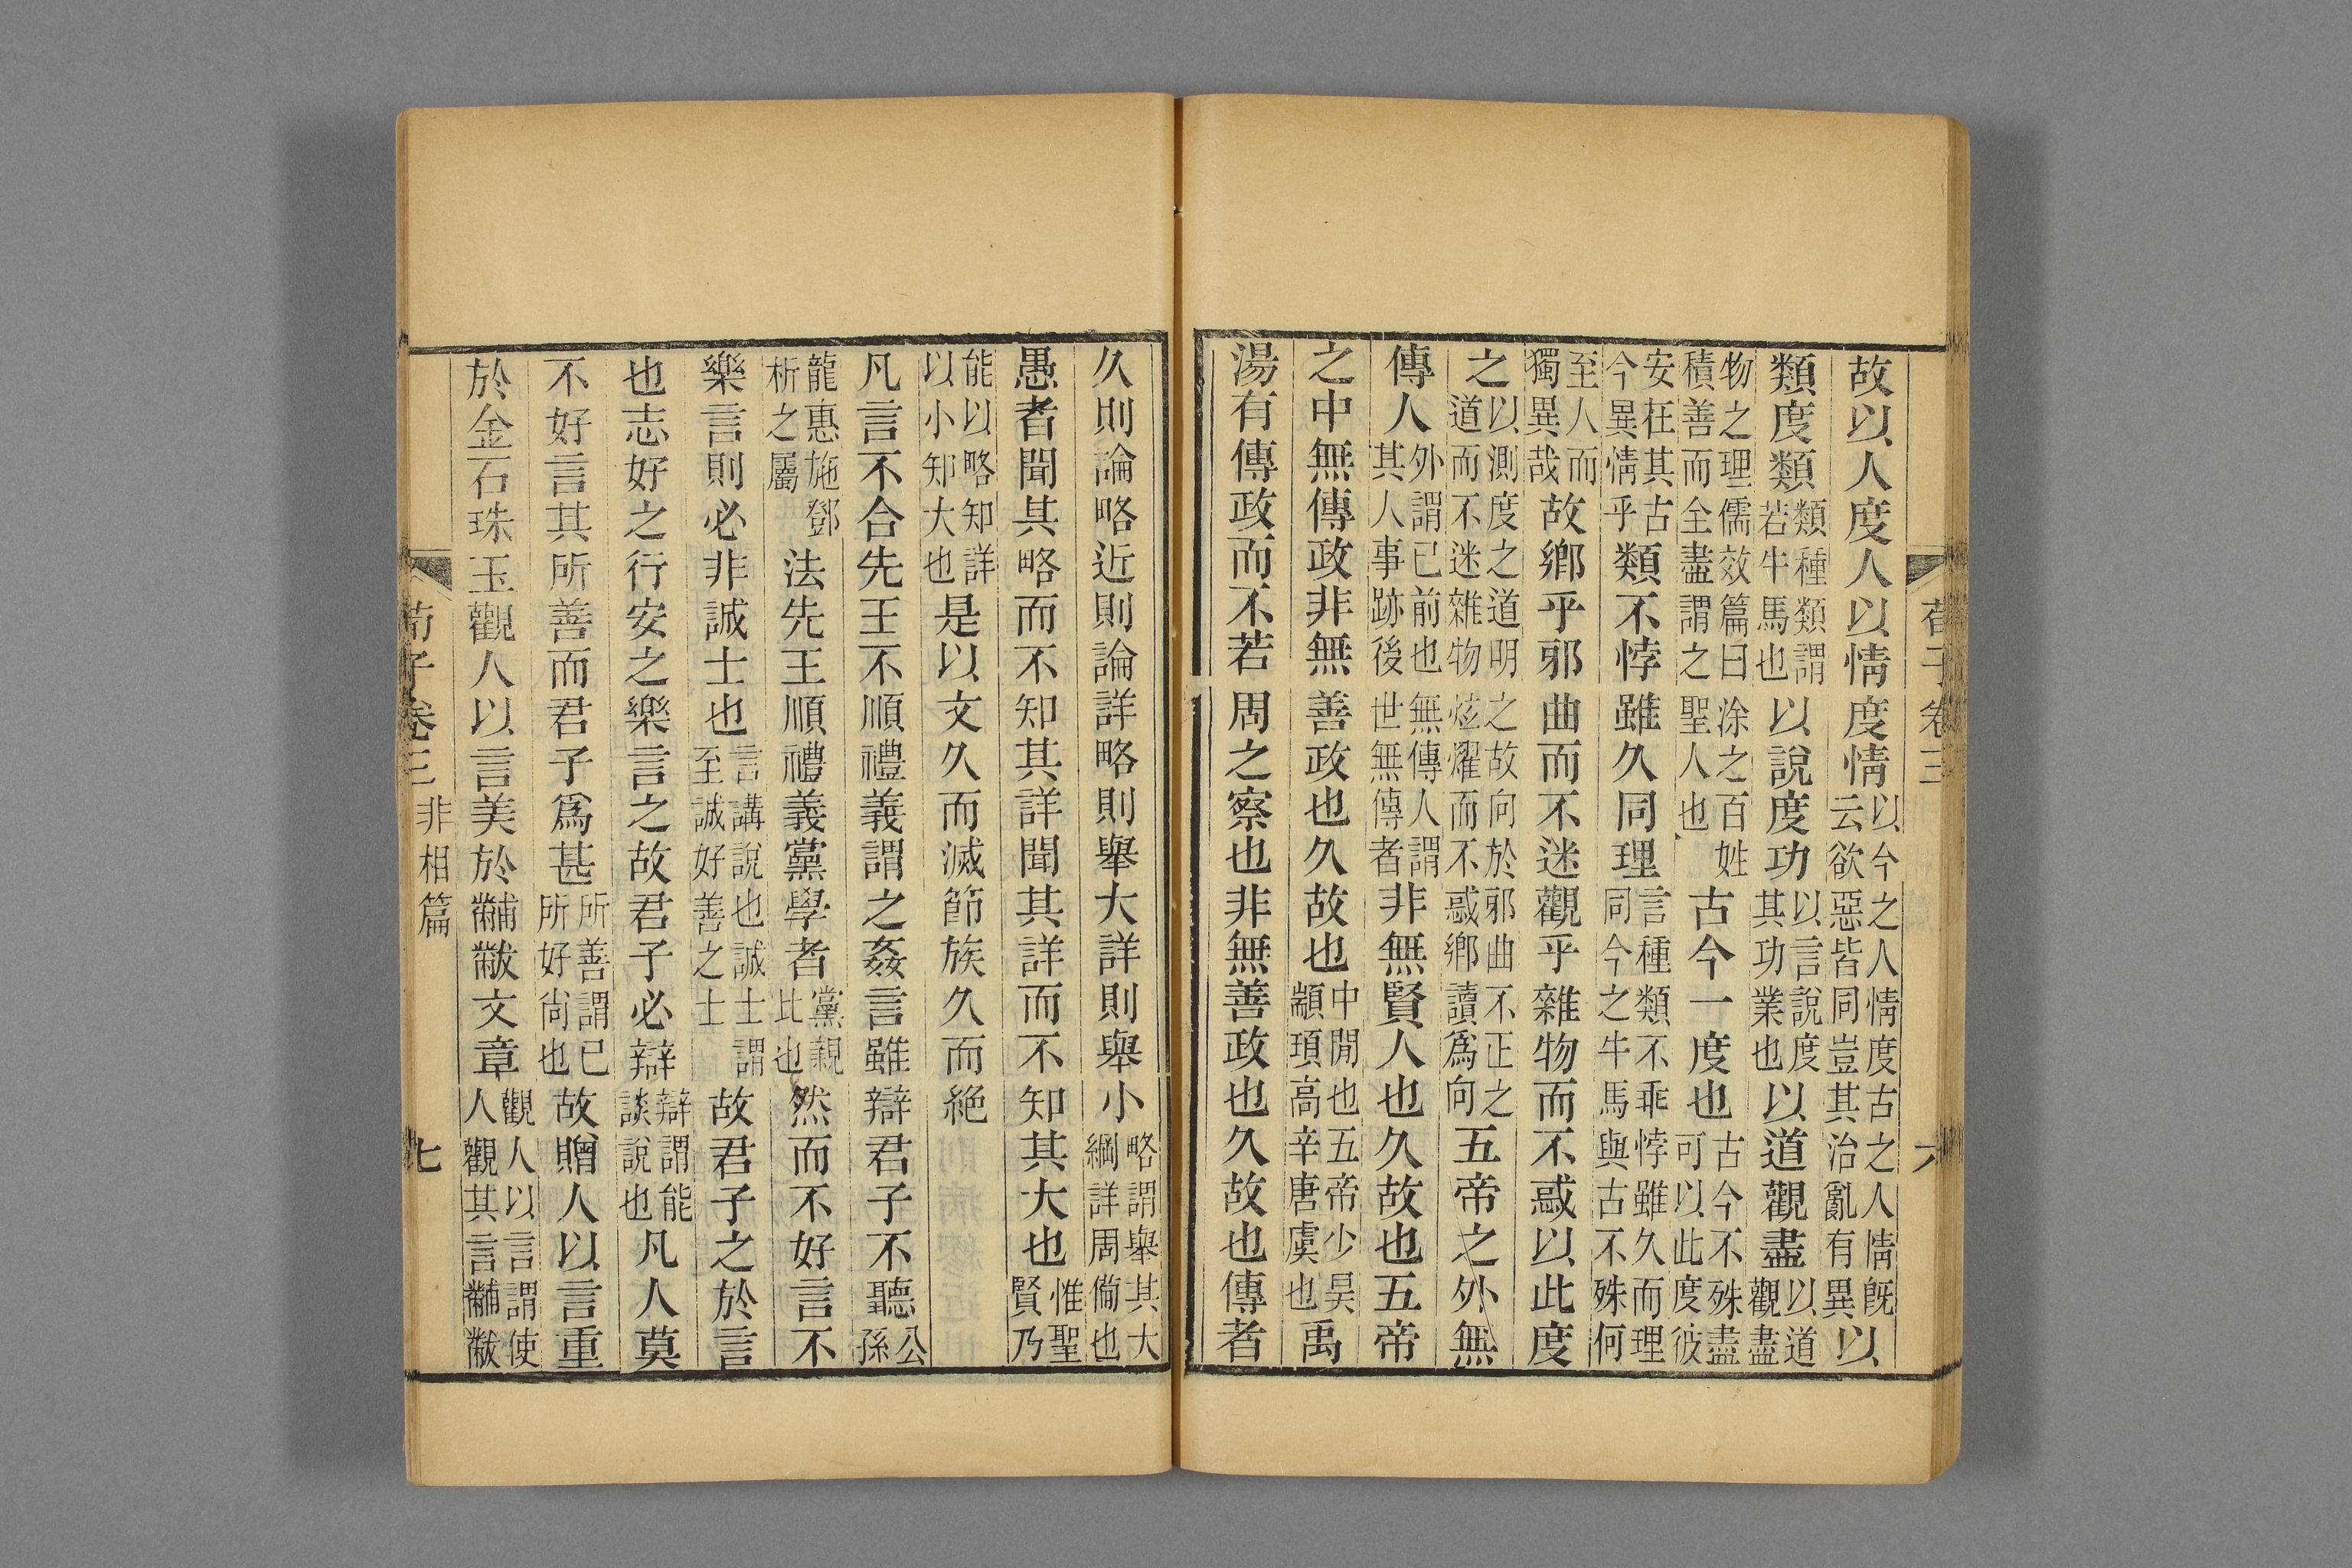 荀子卷三
六
故以人度人以情度情以今之人情度古之人情旣云欲惡皆同豈其治亂有異以
類度類類種類謂若牛馬也以說度功以言說度其功業也以道觀盡以道觀盡
物之理儒效篇曰涂之百姓積善而全盡謂之聖人也古今一度也古今不殊盡可以此度彼
安在其古今異情乎類不悖雖久同理言種類不乖悖雖久而理同今之牛馬與古不殊何
至人而獨異哉故鄉乎邪曲而不迷觀乎雜物而不惑以此度
之以測度之道明之故向於邪曲不正之道而不迷雜物炫耀而不惑鄉讀爲向五帝之外無
傳人外謂已前也無傳人謂其人事跡後世無傳者非無賢人也久故也五帝
之中無傳政非無善政也久故也中閒也五帝少昊顓頊高辛唐虞也禹
湯有傳政而不若周之察也非無善政也久故也傳者
久則論略近則論詳略則舉大詳則舉小略謂舉其大綱詳周備也
愚者聞其略而不知其詳聞其詳而不知其大也惟聖賢乃
能以略知詳以小知大也是以文久而滅節族久而絕
凡言不合先王不順禮義謂之姦言雖辯君子不聽公孫
龍惠施鄧析之屬法先王順禮義黨學者黨親比也然而不好言不
樂言則必非誠士也言講說也誠士謂至誠好善之士故君子之於言
也志好之行安之樂言之故君子必辯辯謂能談說也凡人莫
不好言其所善而君子爲甚所善謂已所好尙也故贈人以言重
於金石珠玉觀人以言美於黼黻文章觀人以言謂使人觀其言黼黻
荀子卷三
非相篇
七